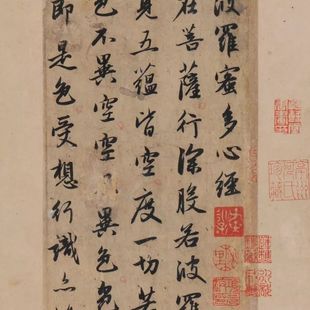 波羅蜜多心經
在菩薩行深般若波羅
見五蘊皆空度一切苦
色不異空空不異色色
即是色受想行識亦